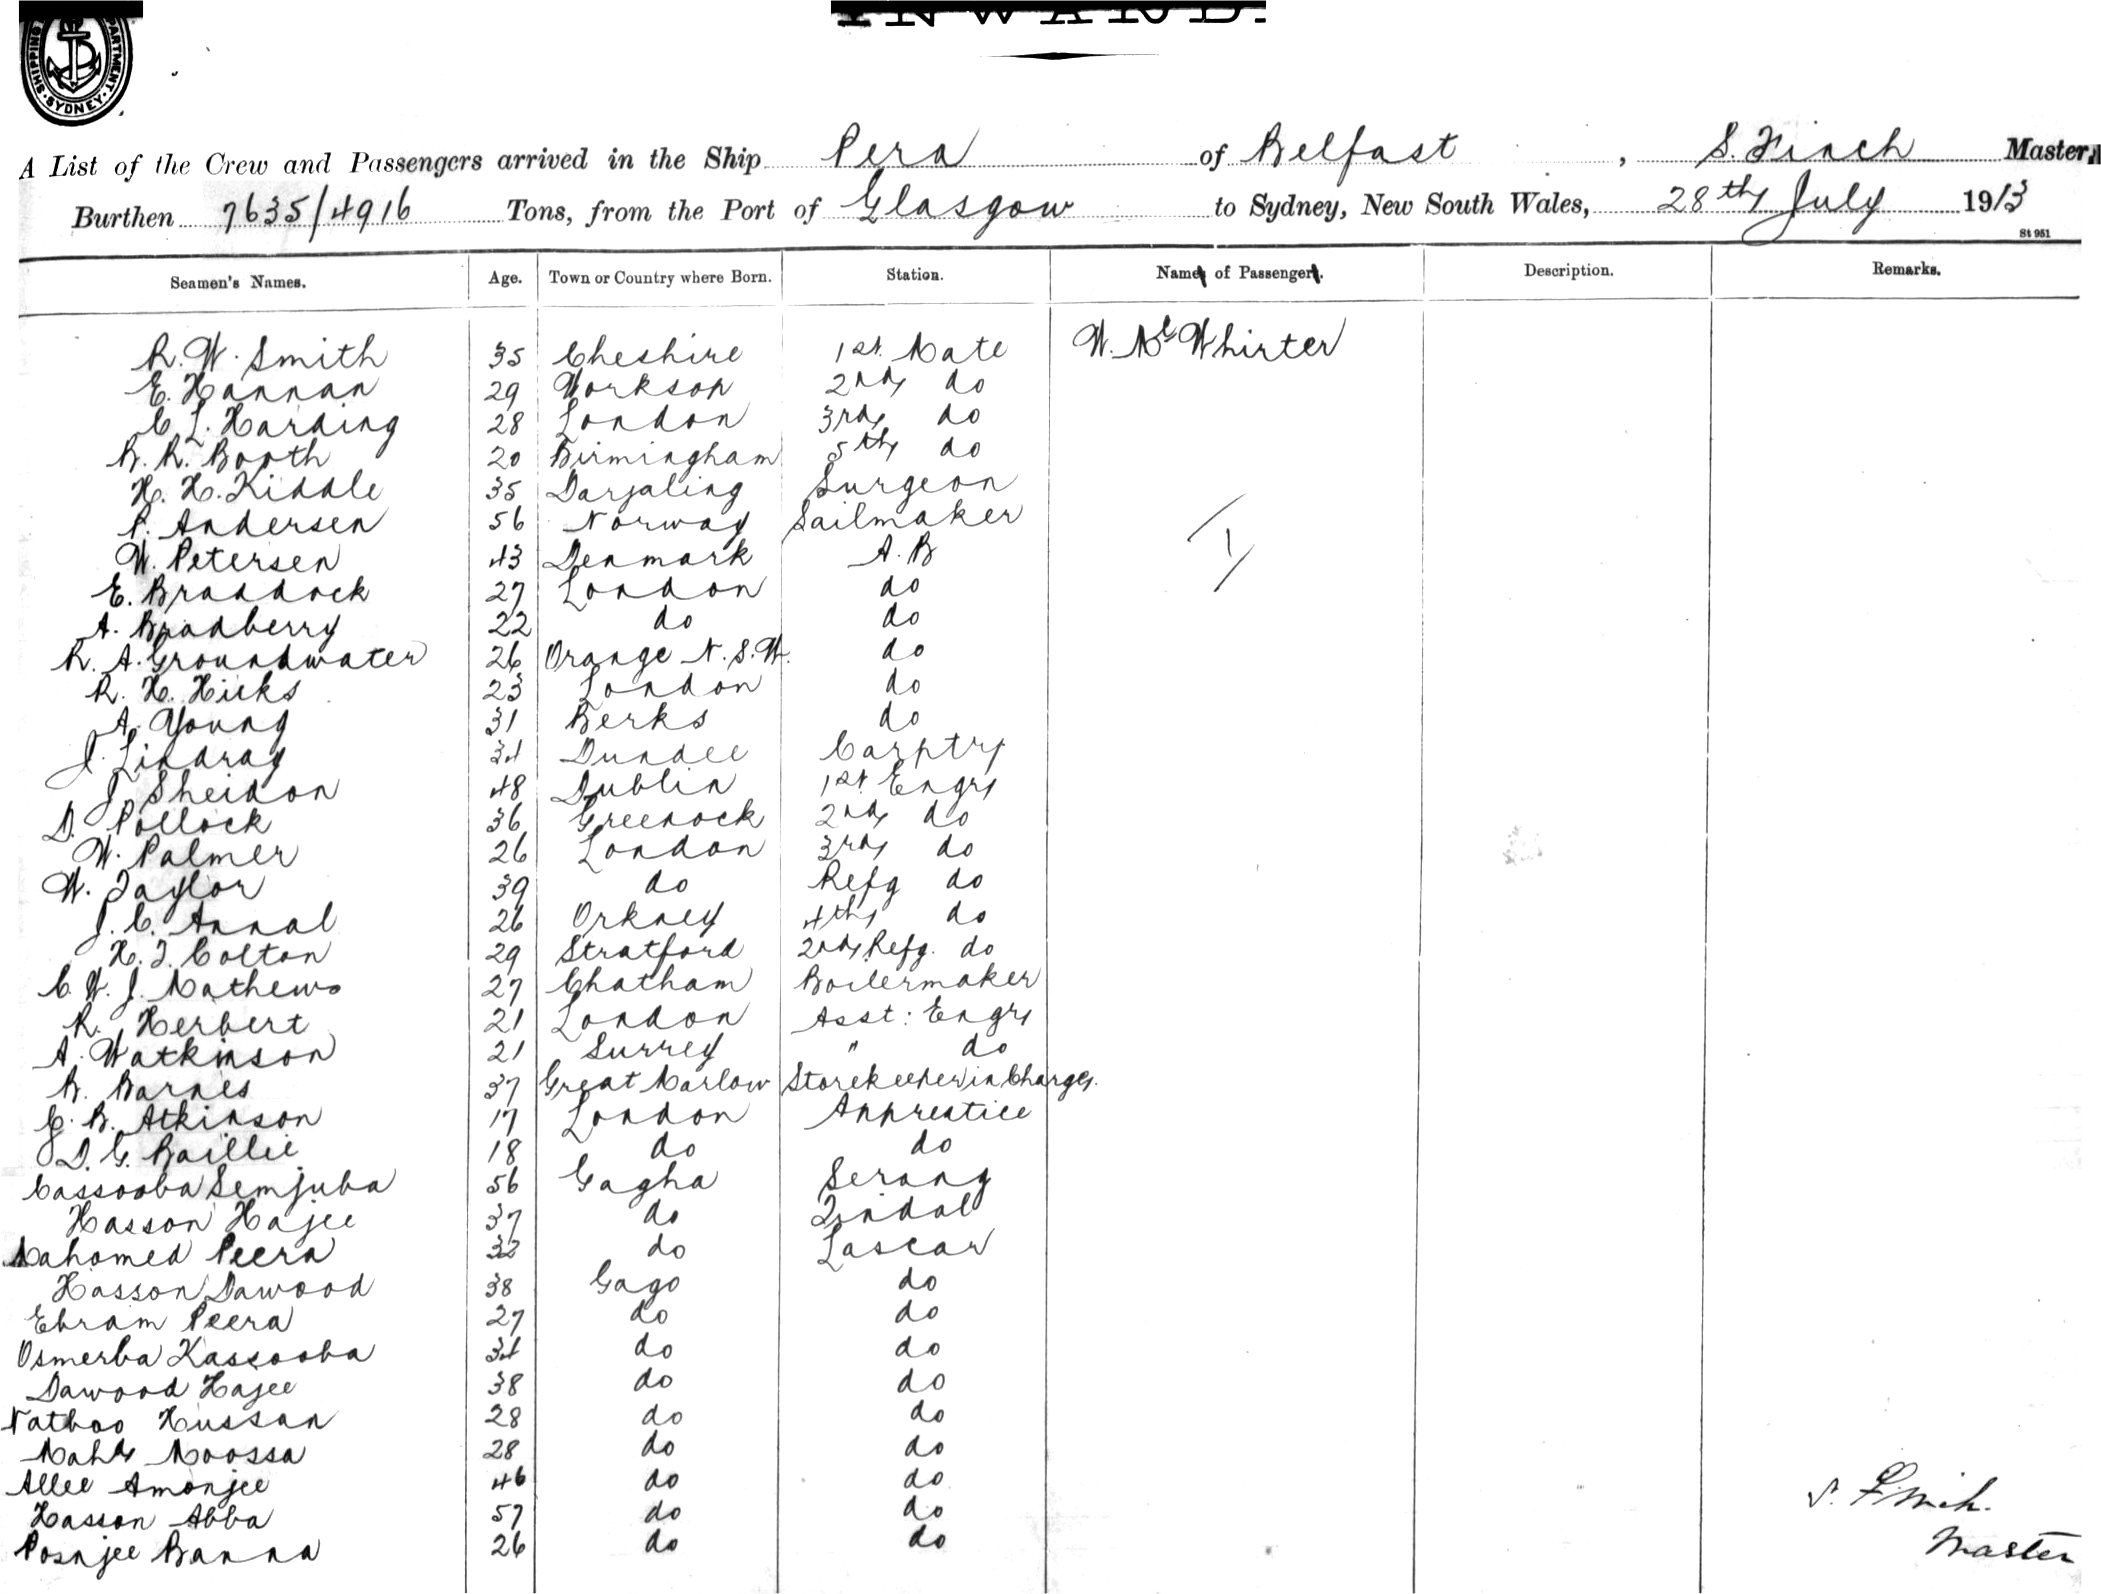 INWARD.
SHIPPING DEPARTMENT. SYDNEY.
A List of the Crew and Passengers arrived in the Ship Pera of Belfast, S. Finch Master,
Burthen 7635/4916 Tons, from the Port of Glasgow to Sydney, New South Wales, 28th July 1913
St 951
Seamen's Names. Age. Town or Country where Born. Station. Names of Passengers. Description. Remarks.
R. W. Smith 35 Cheshire 1st. Mate W. Mc Whirter
E. Hannan 29 Worksop 2nd do
C. L. Harding 28 London 3rd do
B. R. Booth 20 Birmingham 5th do
H. H. Kiddle 35 Darjaling Surgeon
P. Andersen 56 Norway Sailmaker
W. Petersen 43 Denmark A. B
E. Braddock 27 London do
A. Bradberry 22 do do
R. A. Groundwater 26 Orange N. S. W. do
R. H. Hicks 23 London do
A. Young 31 Berks do
J. Lindray 34 Dundee Carptr
J. Sheidon 48 Dublin 1st. Engr
D. Pollock 36 Greenock 2nd do
W. Palmer 26 London 3rd do
W. Taylor 39 do Refg do
J. C. Annal 26 Orkney 4th do
H. J. Colton 29 Stratford 2nd Refg. do
C. W. J. Mathews 27 Chatham Boilermaker
R. Herbert 21 London Asst: Engr
A. Watkinson 21 Surrey " do
B. Barnes 37 Great Marlow Storekeeper in Charge.
C. B. Atkinson 17 London Apprentice
D. G. Baillie 18 do do
Cassooba Semjuba 56 Gagha Serang
Hasson Hajee 37 do Tindal
Mahomed Peera 32 do Lascar
Hasson Dawood 38 Gago do
Ebram Peera 27 do do
Osmerba Kassooba 34 do do
Dawood Hajee 38 do do
Nathoo Hussan 28 do do
Mahd Moossa 28 do do
Allee Amonjee 46 do do
Hasson Abba 57 do do S. Finch.
Posnjee Banna 26 do do Master